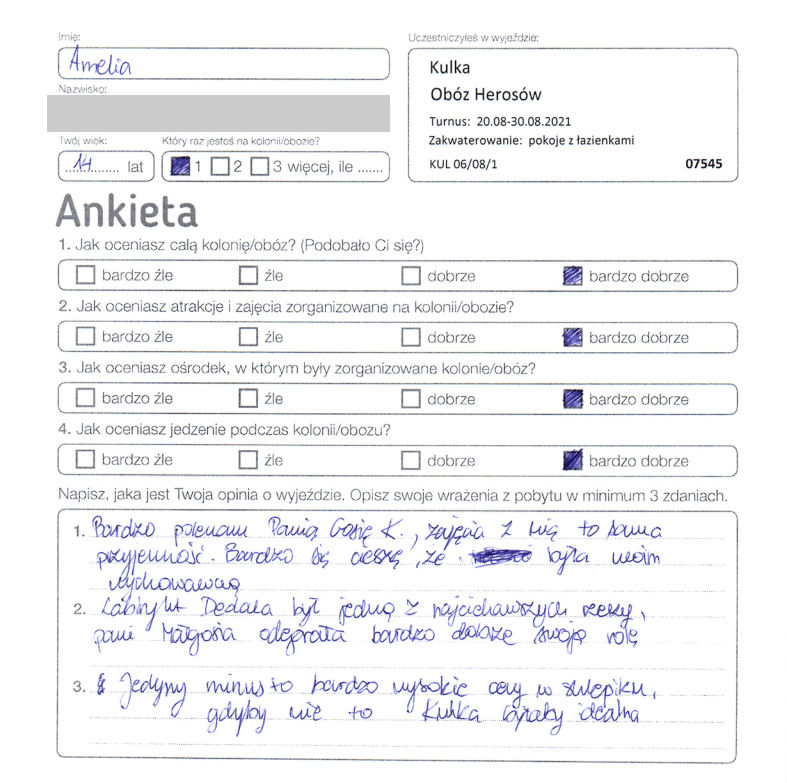 Imię:
Amelia
Uczestniczyłeś w wyjeździe:
Kulka
Obóz Herosów
Turnus: 20.08-30.08.2021
Zakwaterowanie: pokoje z łazienkami
KUL 06/08/1 07545
Nazwisko:
Twój wiek:
14 lat
Który raz jesteś na kolonii/obozie?
1 2 3 więcej, ile .......
Ankieta
1. Jak oceniasz całą kolonię/obóz? (Podobało Ci się?)
bardzo źle źle dobrze bardzo dobrze
2. Jak oceniasz atrakcje i zajęcia zorganizowane na kolonii/obozie?
bardzo źle źle dobrze bardzo dobrze
3. Jak oceniasz ośrodek, w którym były zorganizowane kolonie/obóz?
bardzo źle źle dobrze bardzo dobrze
4. Jak oceniasz jedzenie podczas kolonii/obozu?
bardzo źle źle dobrze bardzo dobrze
Napisz, jaka jest Twoja opinia o wyjeździe. Opisz swoje wrażenia z pobytu w minimum 3 zdaniach.
1. Bardzo polecam Panią Gosię K., zajęcia z nią to sama
przyjemność. Bardzo się cieszę, że była moim
wychowawcą
2. Labirynt Dedala był jedną z najciekawszych rzeczy,
pani Małgosia odegrała bardzo dobrze swoją rolę
3. Jedyny minus to bardzo wysokie ceny w sklepiku,
gdyby nie to Kulka byłaby idealna